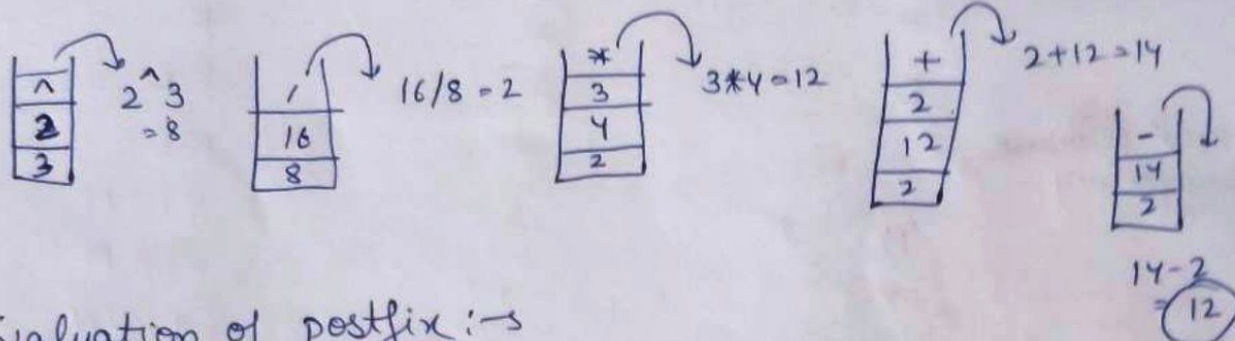 ^ 2 3
2 ^ 3
= 8
/ 16 8
16/8 = 2
* 3 4 2
3*4=12
+ 2 12 2
2+12=14
- 14 2
14-2
= 12
Evaluation of postfix :→